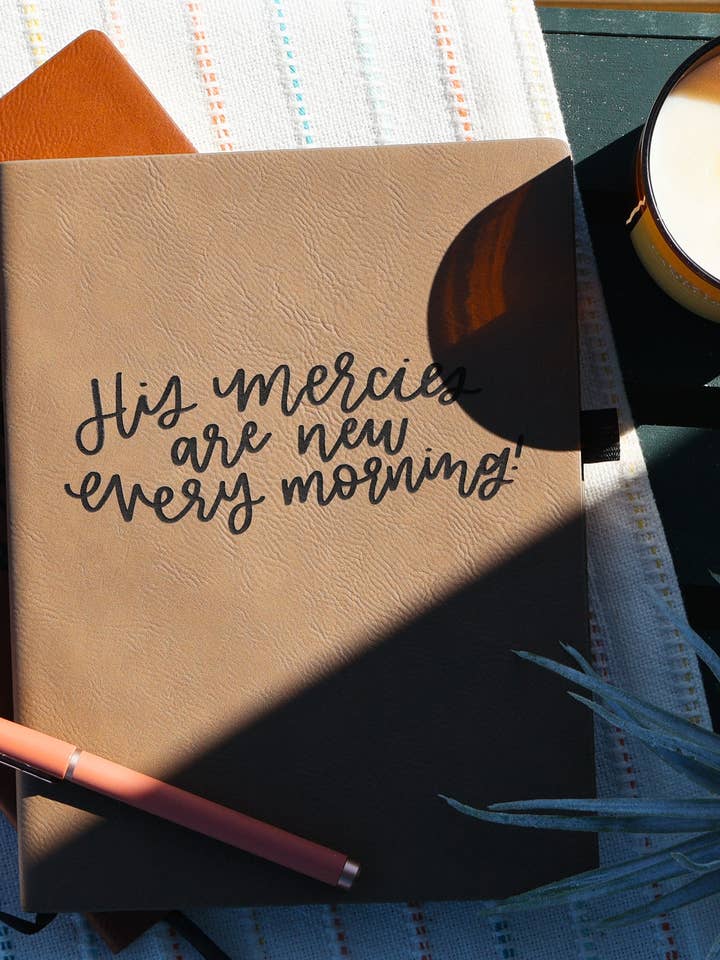 His mercies
are new
every morning!